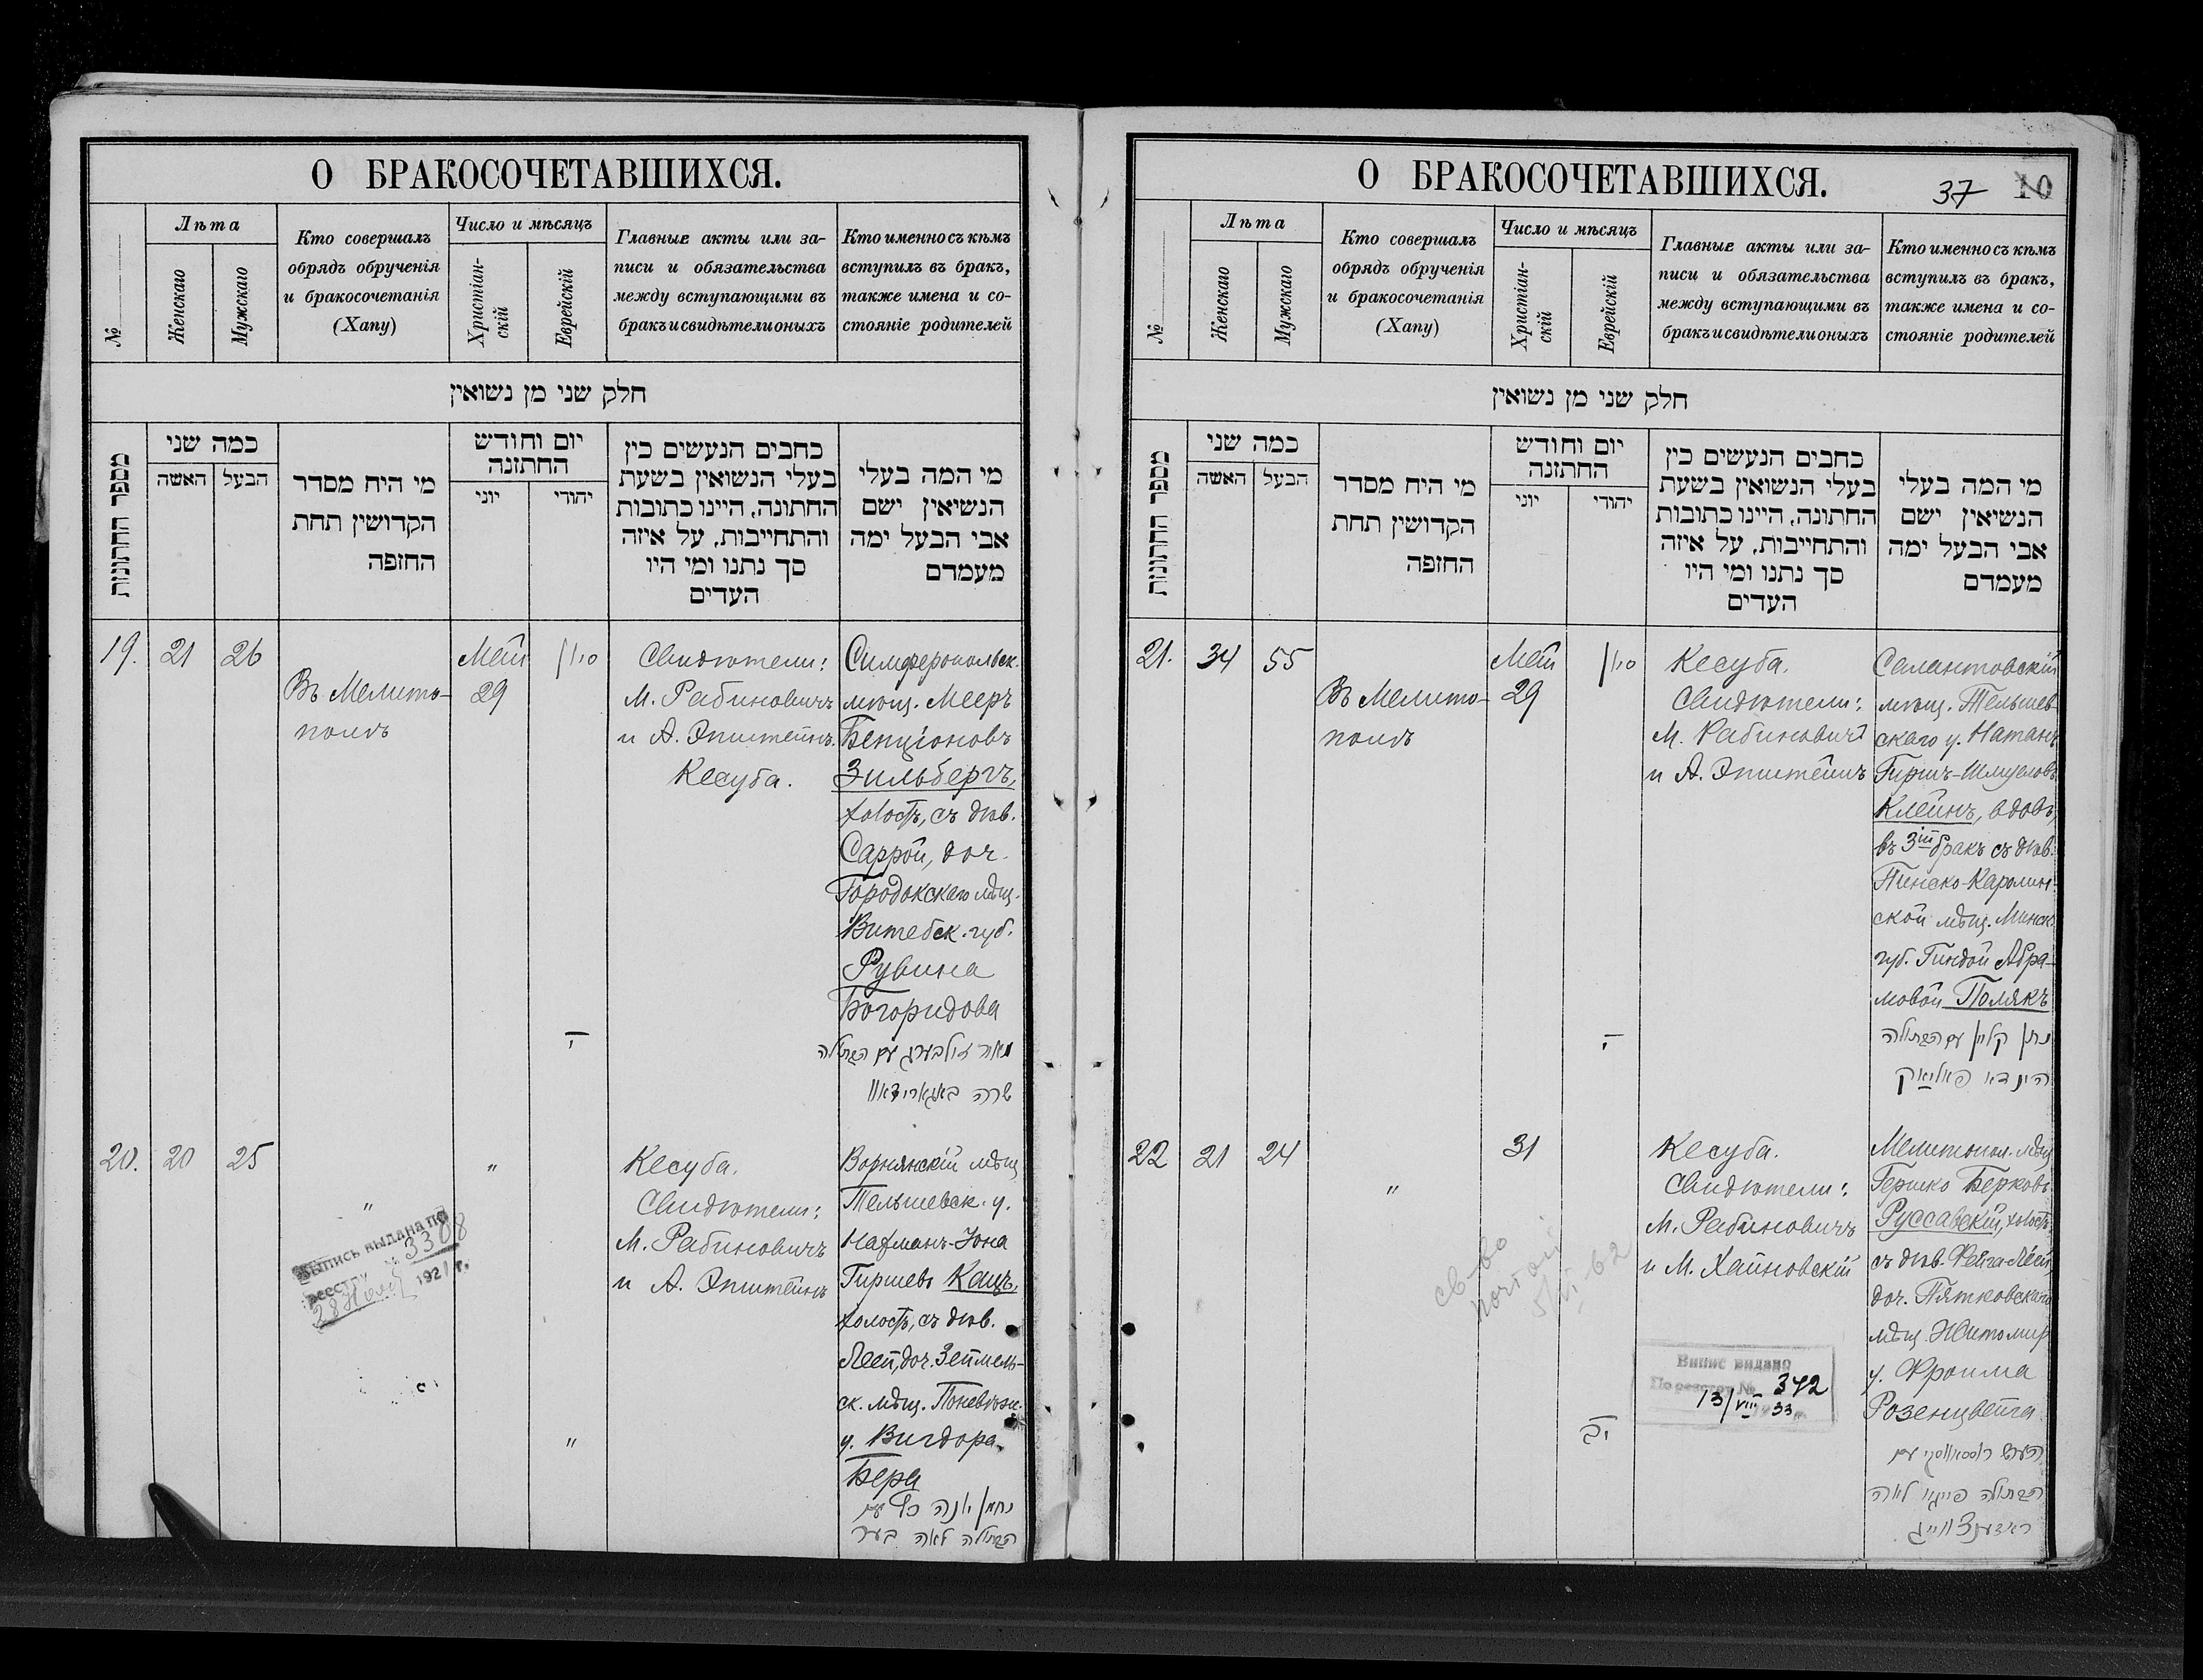 О БРАКОСОЧЕТАВШИХСЯ.
№
Лѣта
Женскаго
Мужскаго
Кто совершалъ
обрядъ обрученія
и бракосочетанія
(Хапу)
Число и мѣсяцъ
Христіан-
скій
Еврейскій
Главные акты или за-
писи и обязательства
между вступающими въ
бракъ и свидѣтели оныхъ
Кто именно съ кѣмъ
вступилъ въ бракъ,
также имена и со-
стояніе родителей
חלק שני מן נשואין
מספר החתונות
כמה שני
האשה
הבעל
מי היח מסדר
הקדושין תחת
החזפה
יום וחודש
החתונה
יוני
יהודי
כחבים הנעשים כין
בעלי הנשואין בשעת
החתונה, היינו כתובות
והתחייבות, על איזה
סך נתנו ומי היו
העדים
מי המה בעלי
הנשיאין ישם
אבי הבעל ימה
מעמדם
19.
21
26
Въ Мелито-
полѣ
Май
29
סיון
י
Свидѣтели:
М. Рабиновичъ
и А. Эпштейнъ.
Кесуба.
Симферопольск.
мѣщ. Мееръ
Бенціоновъ
Зильбергъ,
холостъ, съ дѣв.
Саррой, доч.
Городокскаго мѣщ.
Витебск. губ.
Рувина
Богоридова
מאיר זילבערג עם הבתולה
שרה באגארידאוו
20.
20
25
"
"
"
Выпись выдана по
реестру № 3308
28 1921 г.
Кесуба.
Свидѣтели:
М. Рабиновичъ
и А. Эпштейнъ
Ворнянскій мѣщ
Тельшевск. у.
Нахманъ-Іона
Гиршевъ Кацъ,
холостъ, съ дѣв.
Леей, доч. Зеймель-
ск. мѣщ. Поневѣж.
у. Вигдора
Бера
נחמן יונה כץ עם
הבתולה לאה בער
О БРАКОСОЧЕТАВШИХСЯ.
37
10
№
Лѣта
Женскаго
Мужскаго
Кто совершалъ
обрядъ обрученія
и бракосочетанія
(Хапу)
Число и мѣсяцъ
Христіан-
скій
Еврейскій
Главные акты или за-
писи и обязательства
между вступающими въ
бракъ и свидѣтели оныхъ
Кто именно съ кѣмъ
вступилъ въ бракъ,
также имена и со-
стояніе родителей
חלק שני מן נשואין
מספר החתונות
כמה שני
האשה
הבעל
מי היח מסדר
הקדושין תחת
החזפה
יום וחודש
החתונה
יוני
יהודי
כחבים הנעשים כין
בעלי הנשואין בשעת
החתונה, היינו כתובות
והתחייבות, על איזה
סך נתנו ומי היו
העדים
מי המה בעלי
הנשיאין ישם
אבי הבעל ימה
מעמדם
21.
34
55
Въ Мелито-
полѣ
Май
29
סיון
י
Кесуба.
Свидѣтели:
М. Рабиновичъ
и А. Эпштейнъ
Салантовскій
мѣщ. Тельшев-
скаго у. Натанъ
Гиршъ-Шмуеловъ
Клейнъ, вдовъ,
въ 3ій бракъ съ дѣв.
Пинско-Каролин-
ской мѣщ. Минск.
губ. Гиндой Абра-
мовой Полякъ
נתן קליין עם הבתולה
הינדא פאליאק
22
21
24
"
31
יב
св-во
почтой
5/VI-62
Кесуба.
Свидѣтели:
М. Рабиновичъ
и М. Хайновскій
Випис видано
По реестру № 342
13/VIII 33
Мелитопол. мѣщ
Гершко Берковъ
Руссавскій, холостъ,
съ дѣв. Фейга-Леей,
доч. Пятковскаго
мѣщ. Житомир
у. Фроима
Розенцвейга
הערש רוססאווסקי עם
הבתולה פייגא לאה
ראזענצווייג